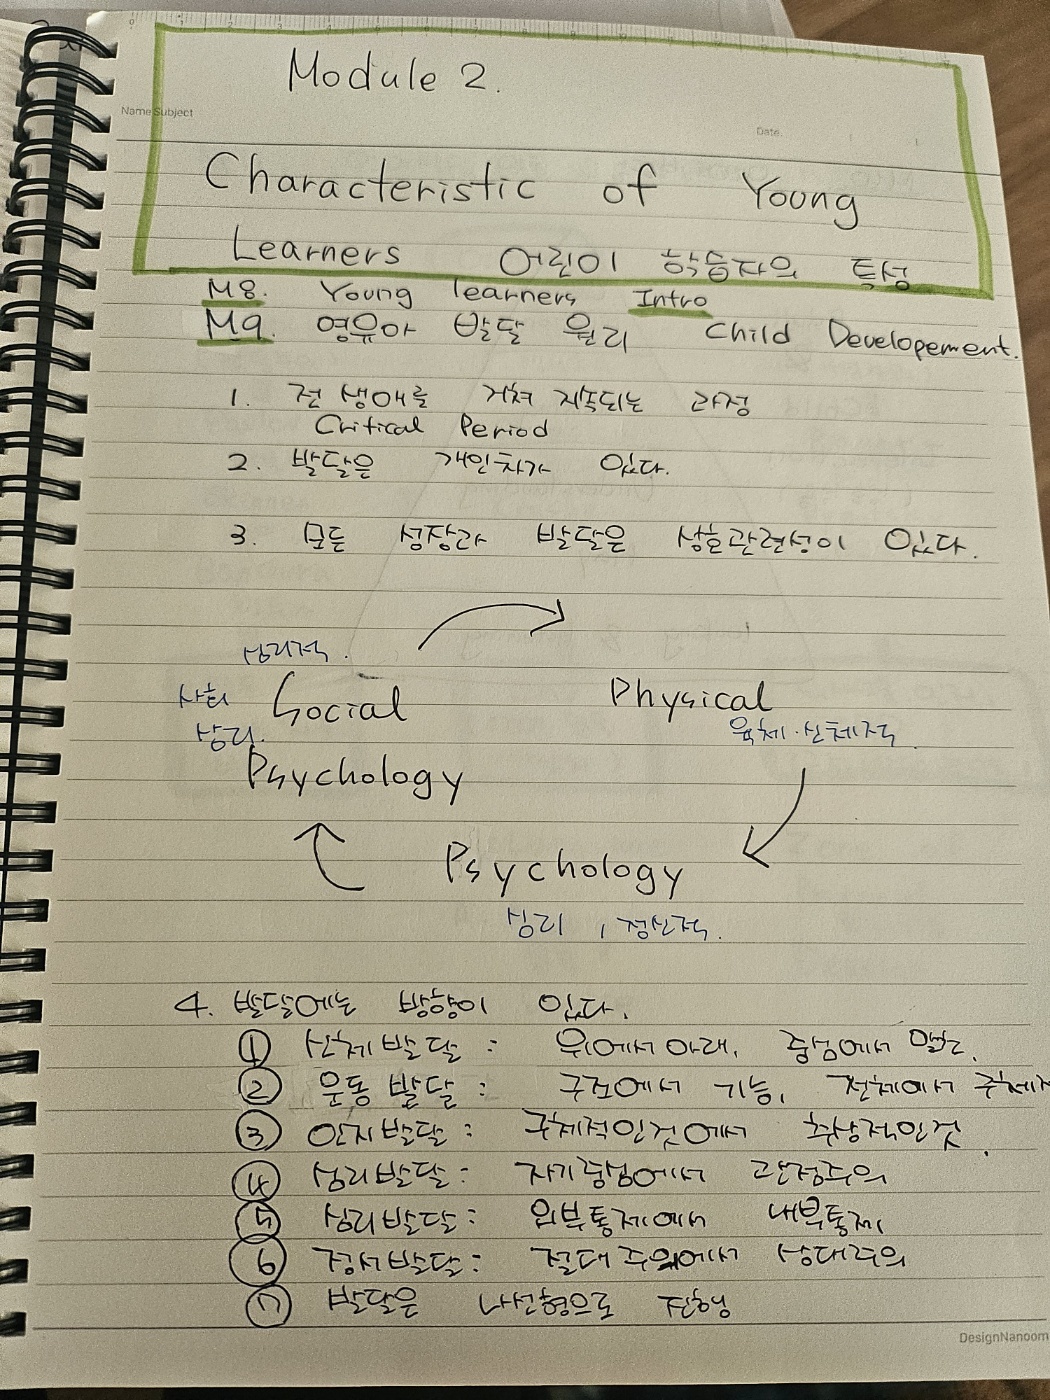 Module 2.
Name Subject
Date.
Characteristic of Young
Learners 어린이 학습자의 특성
M8. Young learners Intro
M9. 영유아 발달 원리 Child Developement.
1. 전 생애를 거쳐 지속되는 과정
Critical Period
2. 발달은 개인차가 있다.
3. 모든 성장과 발달은 상호관련성이 있다.
심리적.
사회 Social
심리.
Psychology
Physical
육체·신체적
Psychology
심리, 정신적.
4. 발달에는 방향이 있다.
① 신체발달 : 위에서 아래, 중심에서
② 운동 발달 : 구조에서 기능, 전체에서
③ 인지발달 : 구체적인것에서 추상적인것.
④ 심리발달 : 자기중심에서
⑤ 심리발달 : 외부통제에서 내부통제
⑥ 정서발달 : 절대주의에서 상대주의
⑦ 발달은 나선형으로 진행
DesignNanoom